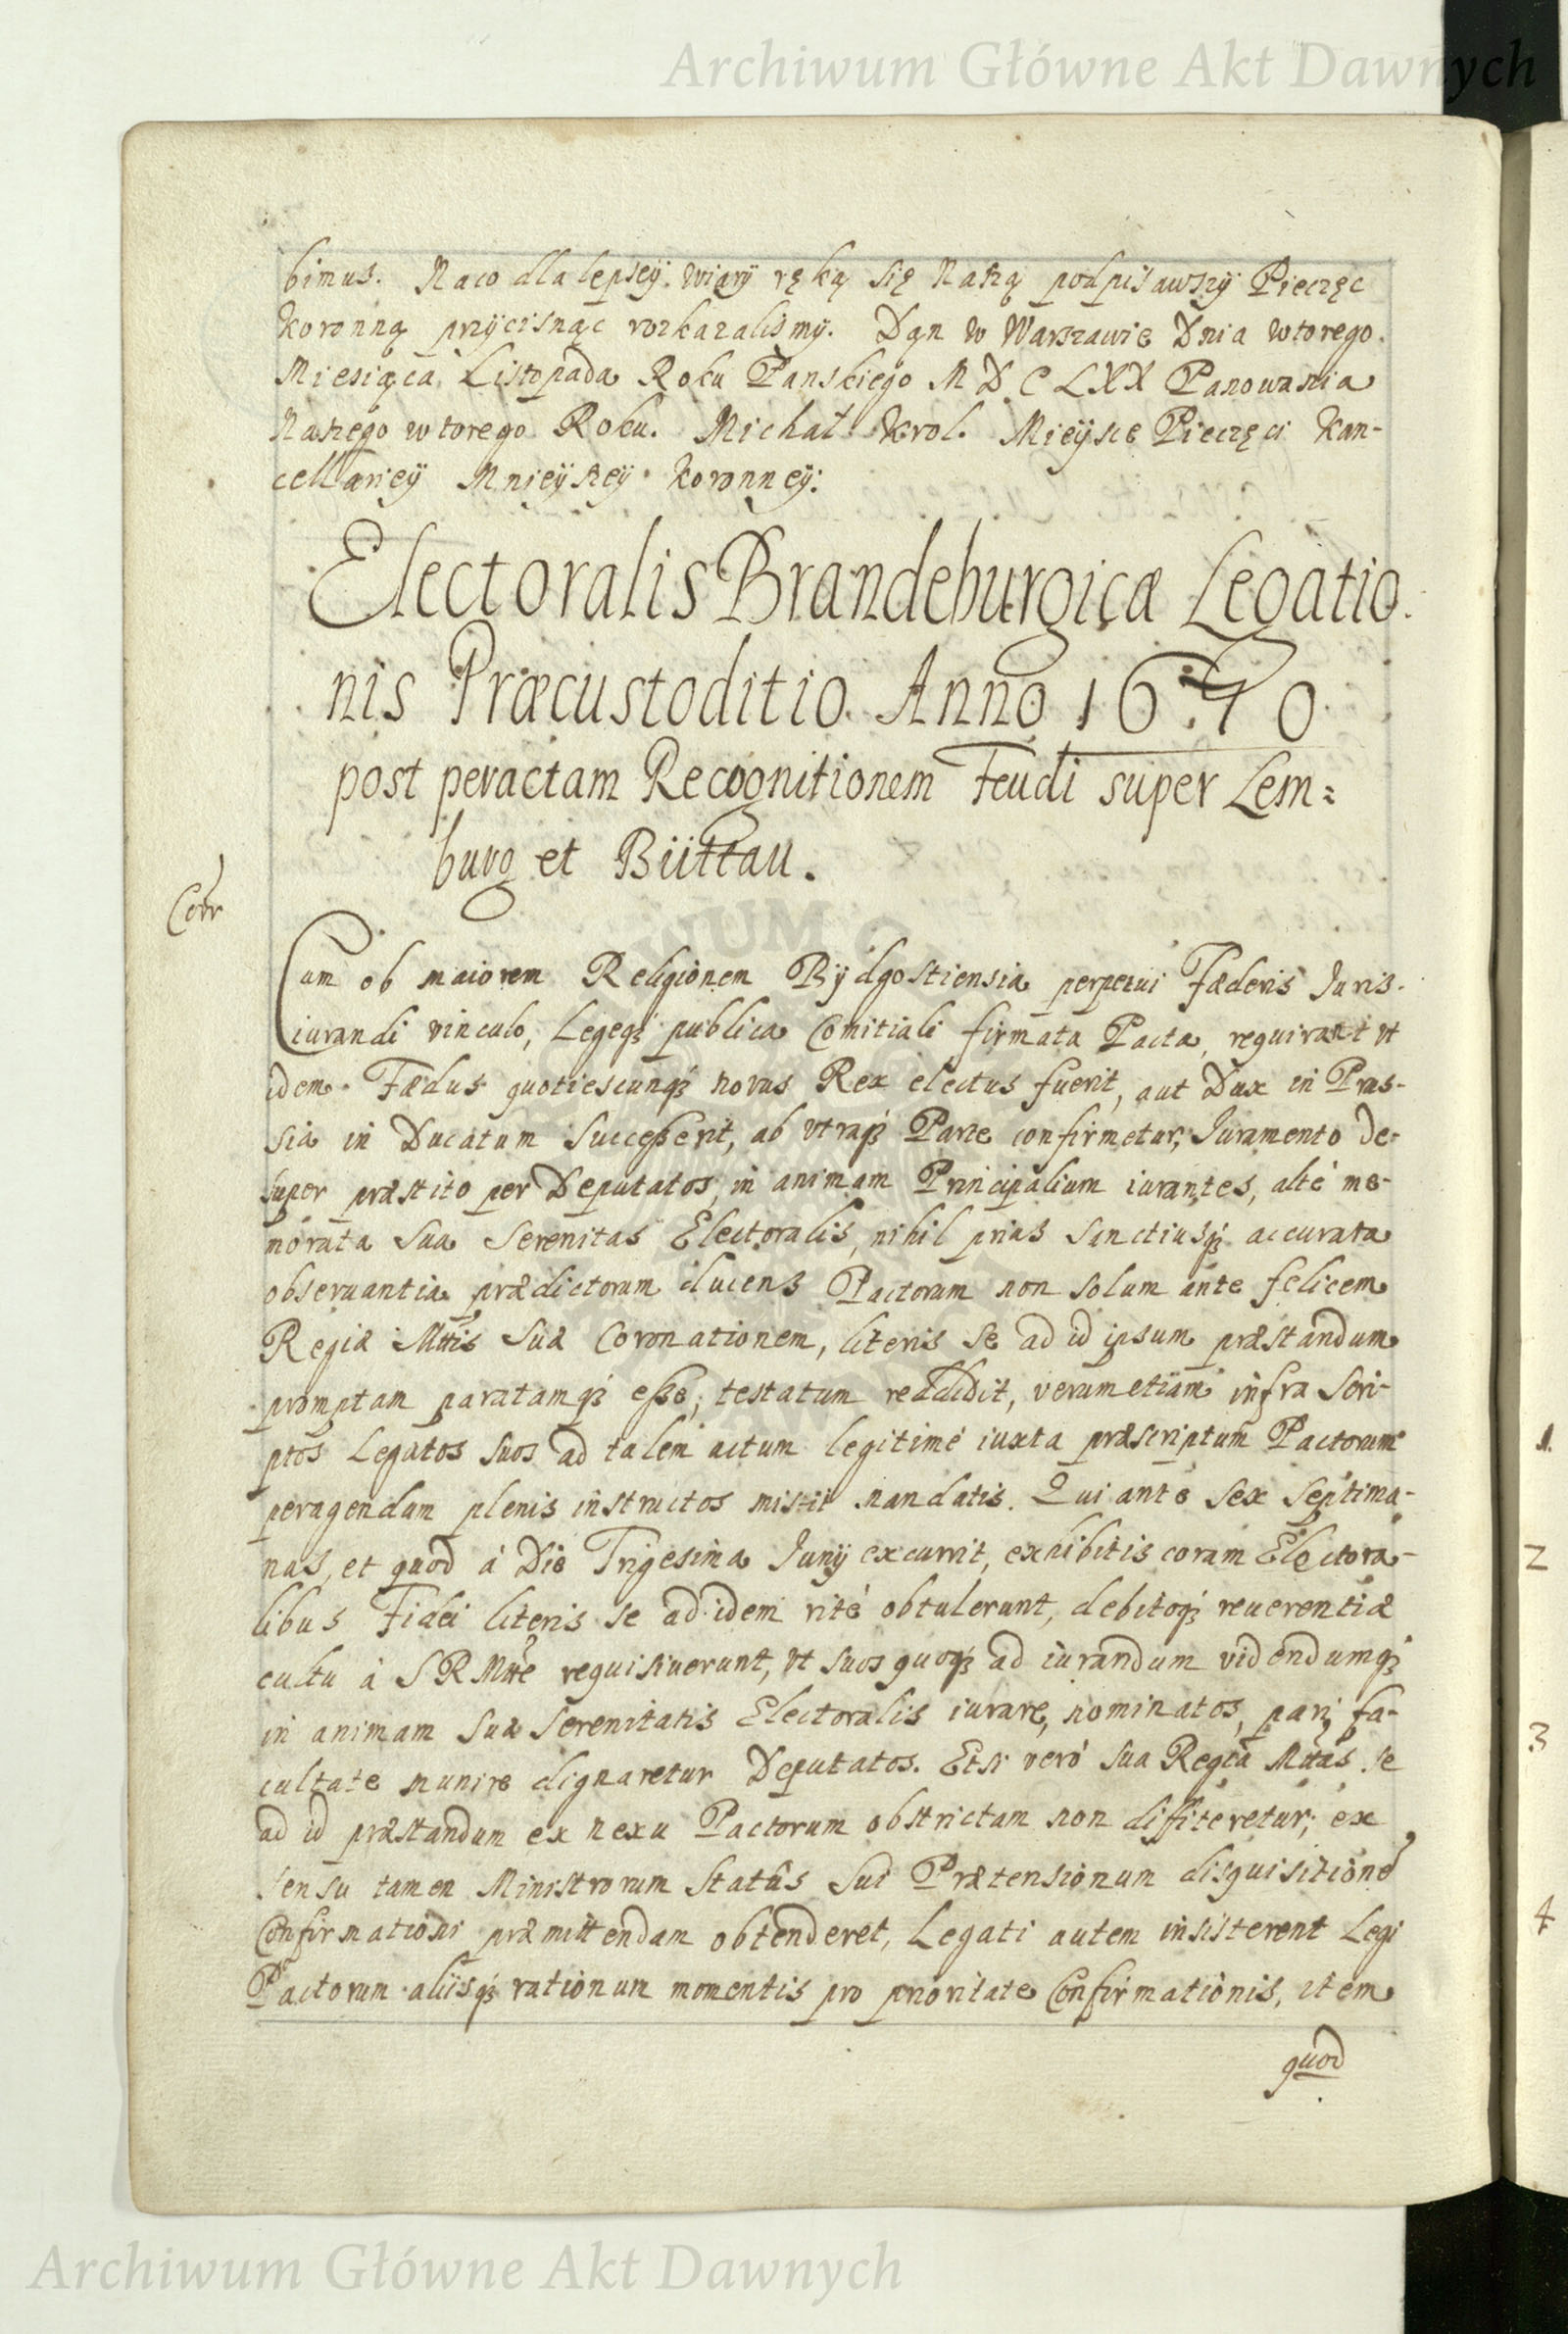 Archiwum Główne Akt Dawnych
bimus. Naco dla lepszey wiary ręką się Naszą podpisawszy Pieczęc
koronną przycisnąc rozkazalismy. Dan w Warszawie Dnia wtorego
Miesiąca Listopada Roku Panskiego MDCLXX Panowania
Naszego wtorego Roku. Michał Krol. Mieysce Pieczęci Kan-
cellariey Mnieyszey Koronney:
Electoralis Brandeburgicæ Legatio
nis Præcustoditio Anno 1670
post peractam Recognitionem Feudi super Lem=
burg et Büttau.
Corr
Cum ob maiorem Religionem Bydgostiensia perpetui Fæderis Iuris-
iurandi vinculo, Legeqꝫ publica Comitiali firmata Pacta, requirant vt
idem Fædus quotiescunqꝫ novus Rex electus fuerit, aut Dux in Prus-
sia in Ducatum Successerit, ab vtraqꝫ Parte confirmetur, Iuramento de-
super præstito per Deputatos, in animam Principalium iurantes, altè me-
morata Sua Serenitas Electoralis, nihil prius Sanctiusqꝫ accurata
obseruantia prædictorum ducens Pactorum non solum ante felicem
Regiæ Mttis Suæ Coronationem, literis Se ad id ipsum præstandum
promptam paratamqꝫ esse, testatum reddidit, verum etiam infra Scri-
ptos Legatos Suos ad talem actum legitimè iuxta præscriptum Pactorum
peragendum plenis instructos misit mandatis. Qui ante Sex Septima-
nas, et quod à Die Trigesima Iunÿ excurrit, exhibitis coram Electora-
libus Fidei literis se ad idem ritè obtulerunt, debitoqꝫ reuerentiæ
cultu à SRMtte requisiuerunt, vt suos quoqꝫ ad iurandum videndumqꝫ
in animam Suæ Serenitatis Electoralis iurare, nominatos, pari fa-
cultate munire dignaretur Deputatos. Etsi verò Sua Regia Mttas se
ad id præstandum ex nexu Pactorum obstrictam non diffiteretur; ex
sensu tamen Ministrorum Statûs Sui Prætensionum disquisitionē
Confirmationi præmittendam obtenderet, Legati autem insisterent Legi
Pactorum aliisqꝫ rationum momentis pro prioritate Confirmationis, item
quod
1.
2
3
4
Archiwum Główne Akt Dawnych